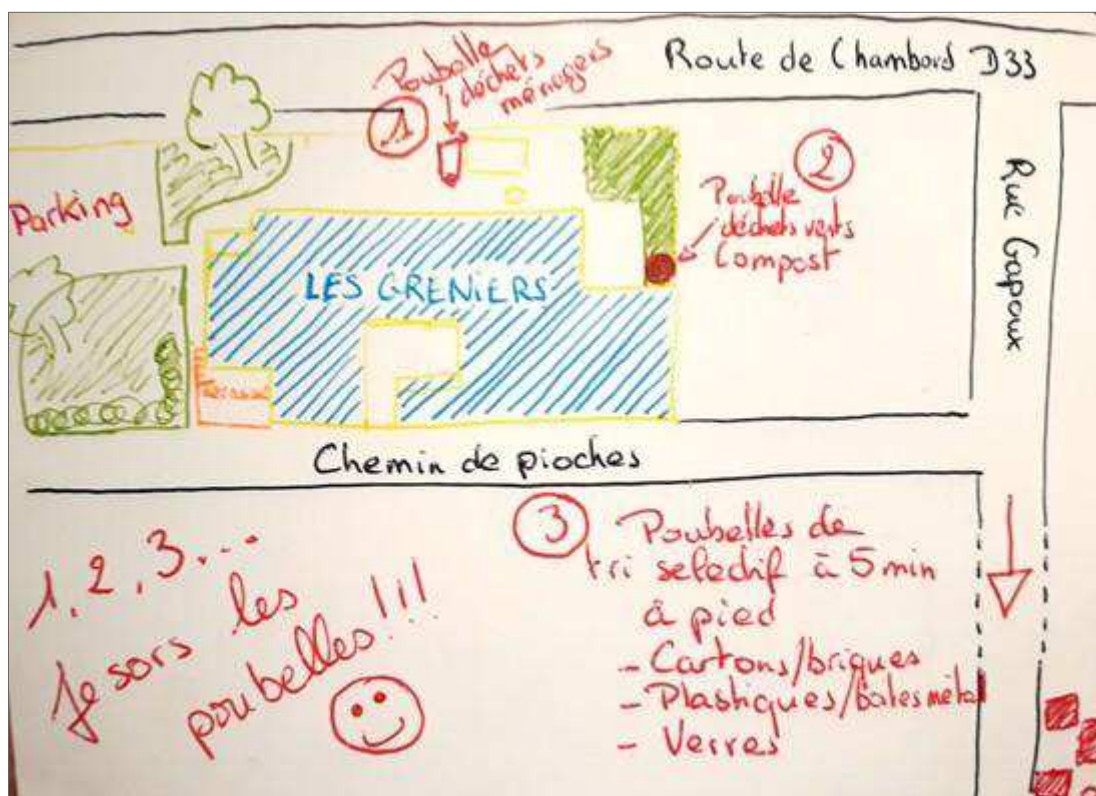 Route de Chambord D33
1
Poubelle
déchets
ménagers
2
Poubelle
déchets verts
Compost
Parking
LES GRENIERS
Terrasse
Rue Gapoux
Chemin de pioches
3
Poubelles de
tri selectif à 5 min
à pied
- Cartons/briques
- Plastiques/boites métal
- Verres
1, 2, 3...
Je sors les
poubelles!!!